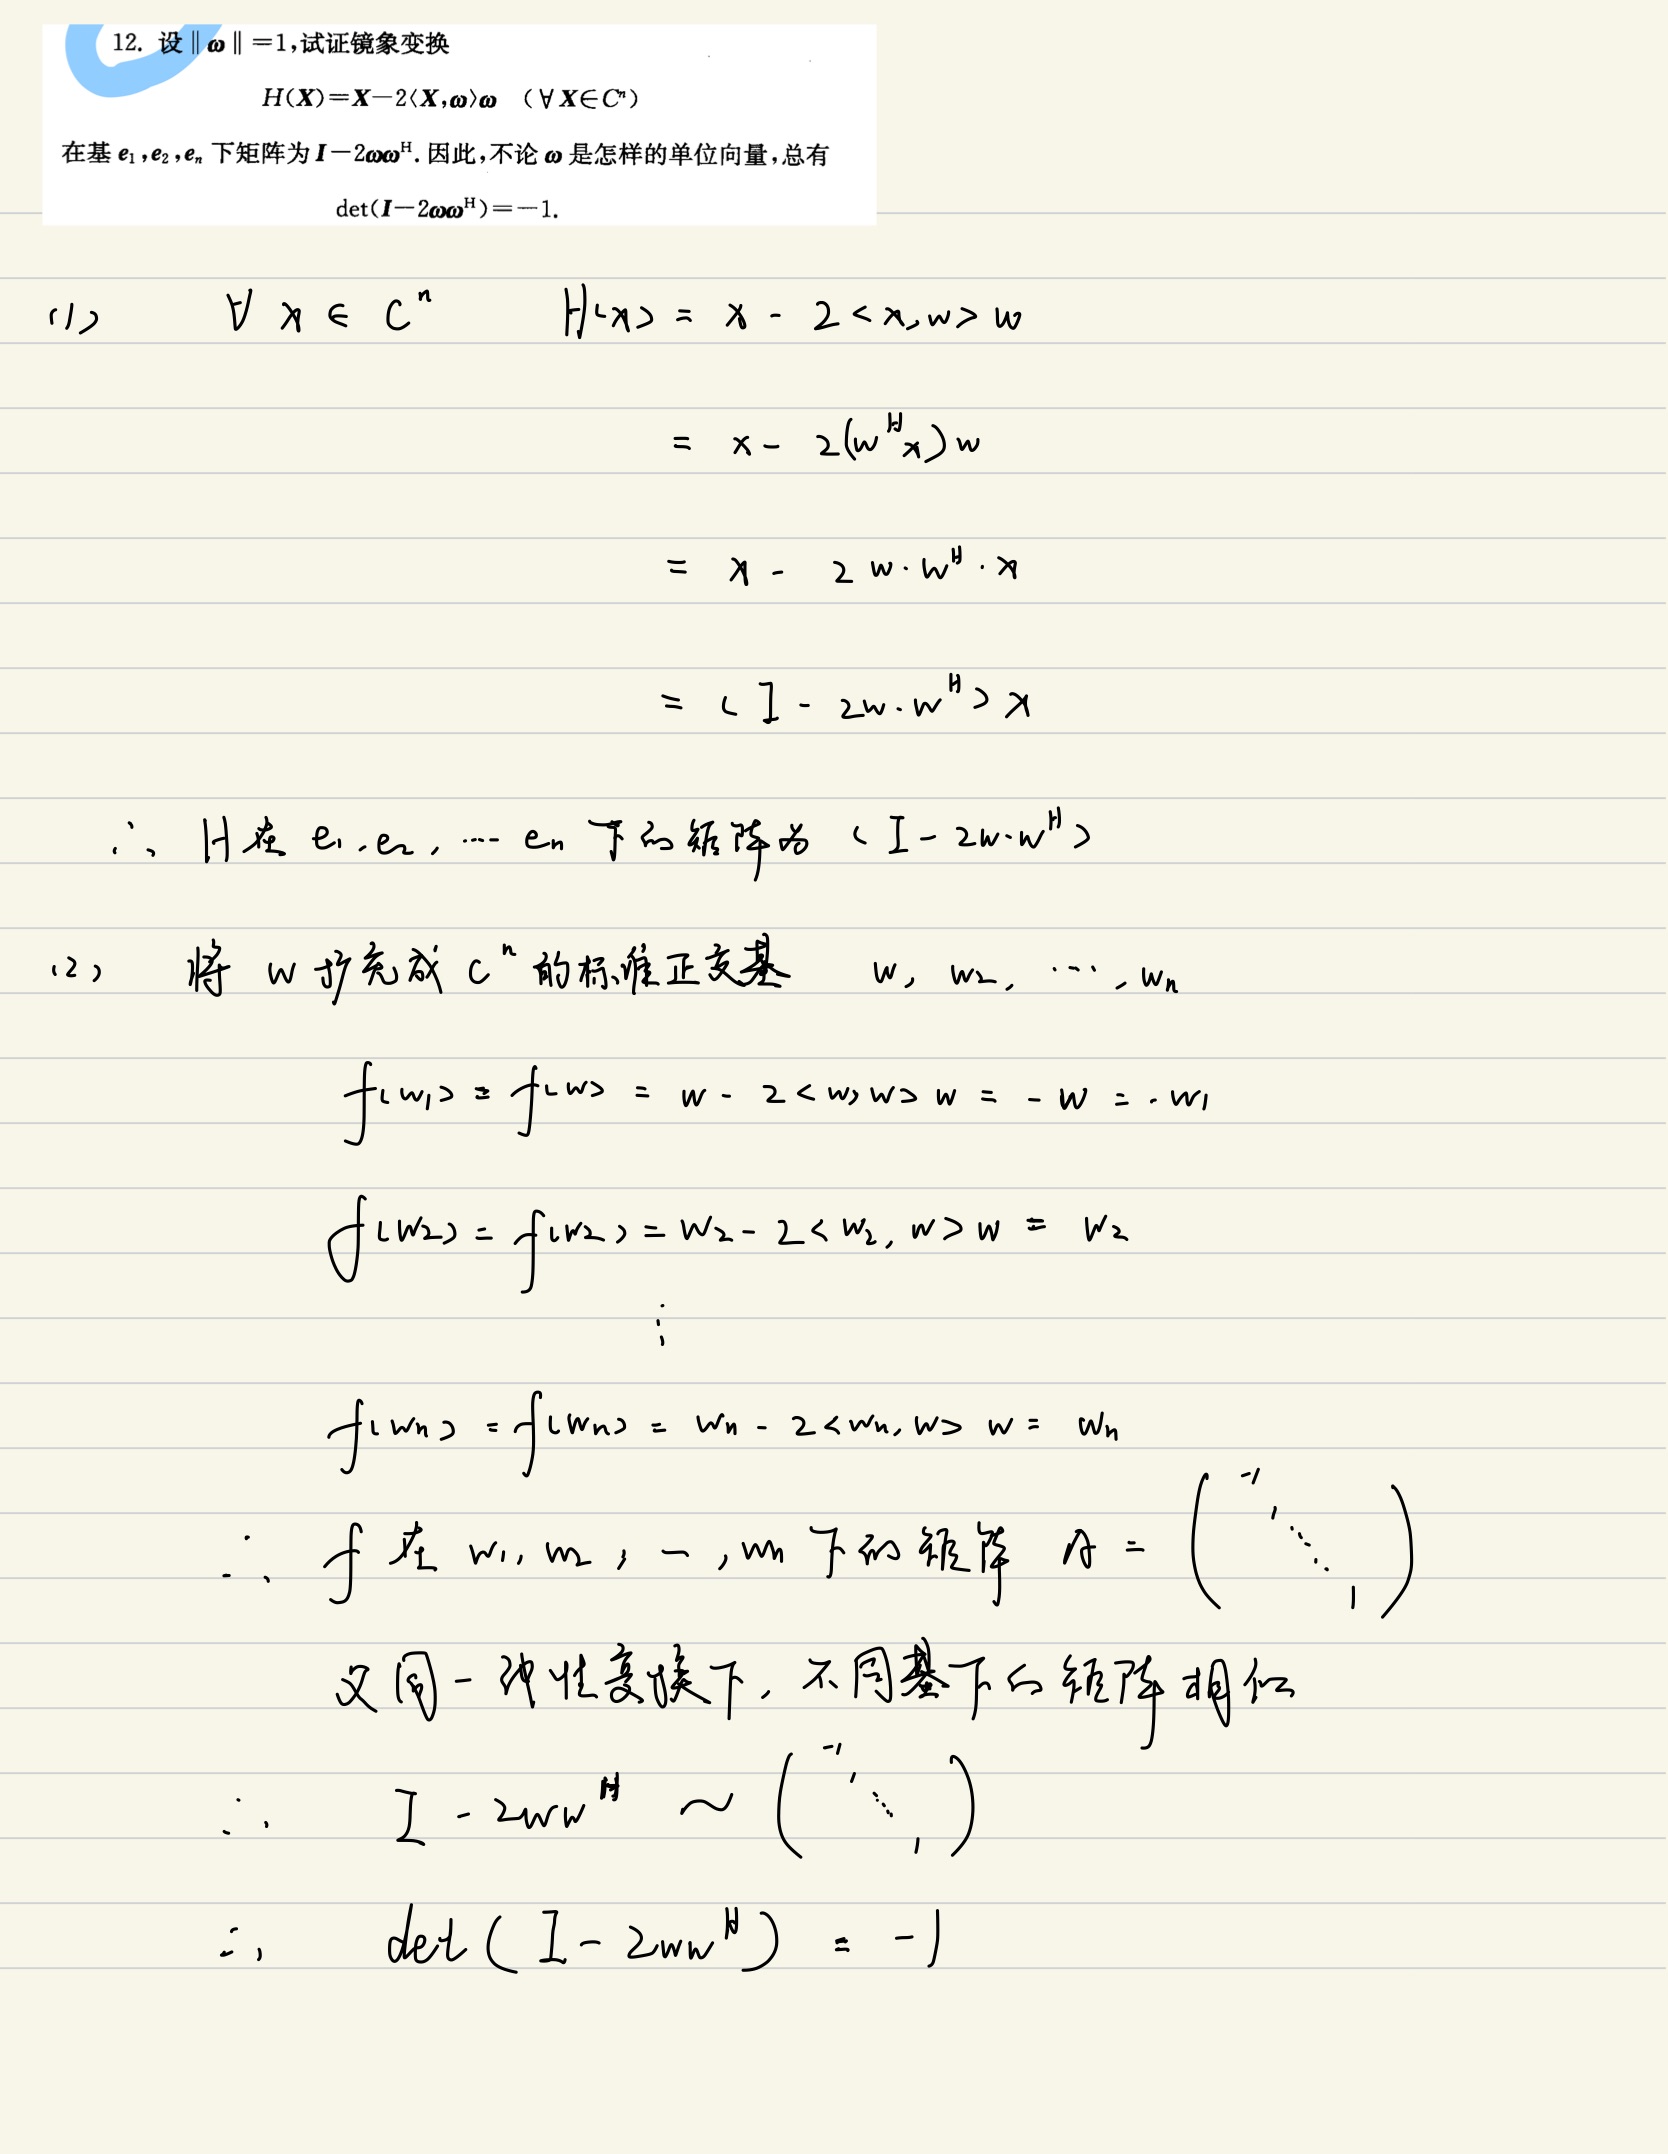 12. 设‖ω‖=1,试证镜象变换
H(X)=X−2⟨X,ω⟩ω （∀X∈Cⁿ）
在基 e₁,e₂,eₙ 下矩阵为 I−2ωωᴴ. 因此,不论 ω 是怎样的单位向量,总有
det(I−2ωωᴴ)=−1.
(1) ∀ x ∈ Cⁿ H(x) = x - 2<x,w>w
= x - 2(wᴴx)w
= x - 2w·wᴴ·x
= (I - 2w·wᴴ)x
∴ H在 e₁,e₂, ··· eₙ 下的矩阵为 (I - 2w·wᴴ)
(2) 将 w 扩充成 Cⁿ 的标准正交基 w, w₂, ···, wₙ
f(w₁) = f(w) = w - 2<w,w>w = -w = -w₁
f(w₂) = f(w₂) = w₂ - 2<w₂,w>w = w₂
⋮
f(wₙ) = f(wₙ) = wₙ - 2<wₙ,w>w = wₙ
∴ f 在 w₁, w₂, ···, wₙ 下的矩阵 A = (-1 1 ⋱ 1)
又同一线性变换下，不同基下的矩阵相似
∴ I - 2wwᴴ ~ (-1 1 ⋱ 1)
∴ det(I - 2wwᴴ) = -1